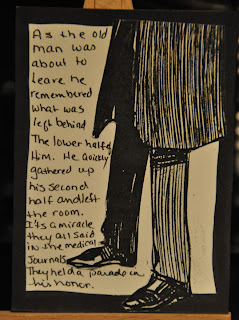 As the old
man was
about to
leave he
remembered
what was
left behind
The lower half of
Him. He quickly
gathered up
his second
half and left
the room.
It's a miracle
they all said
in the medical
Journals
They held a parade in
his honor.